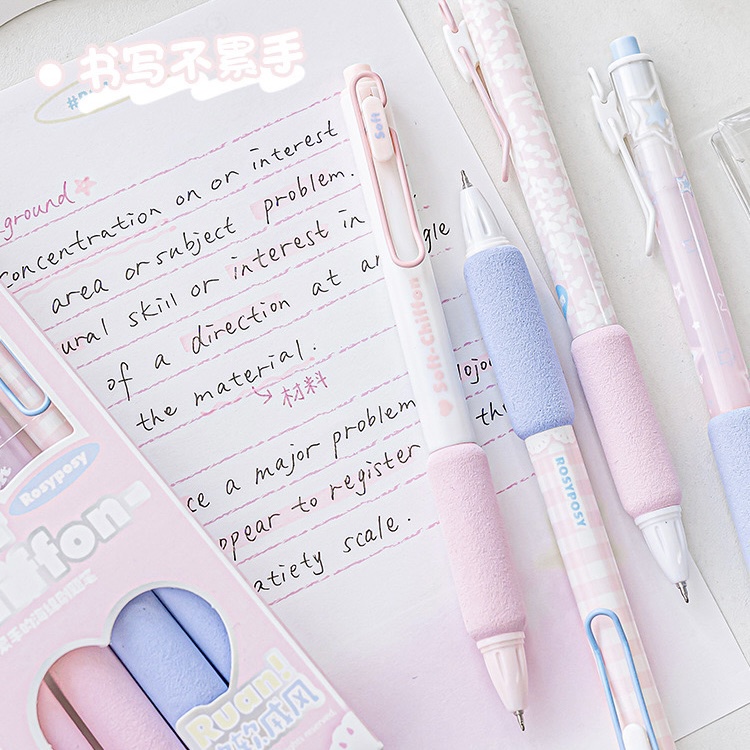 书写不累手
ground
concentration on or interest
area or subject problem.
ural skill or interest in
of a direction at an gle
the material.
材料
ce a major problem
ppear to register th
atiety scale.
Soft
Soft-Chiffon
ROSYPOSY
Rosyposy
iffon-
Ruan!